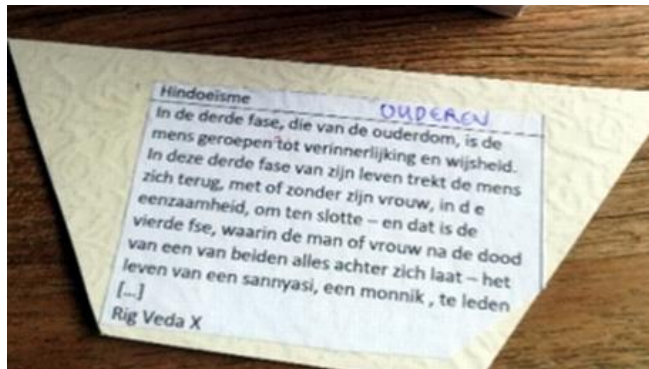 Hindoeïsme
OUDEREN
In de derde fase, die van de ouderdom, is de
mens geroepen tot verinnerlijking en wijsheid.
In deze derde fase van zijn leven trekt de mens
zich terug, met of zonder zijn vrouw, in d e
eenzaamheid, om ten slotte – en dat is de
vierde fse, waarin de man of vrouw na de dood
van een van beiden alles achter zich laat – het
leven van een sannyasi, een monnik , te leden
[...]
Rig Veda X